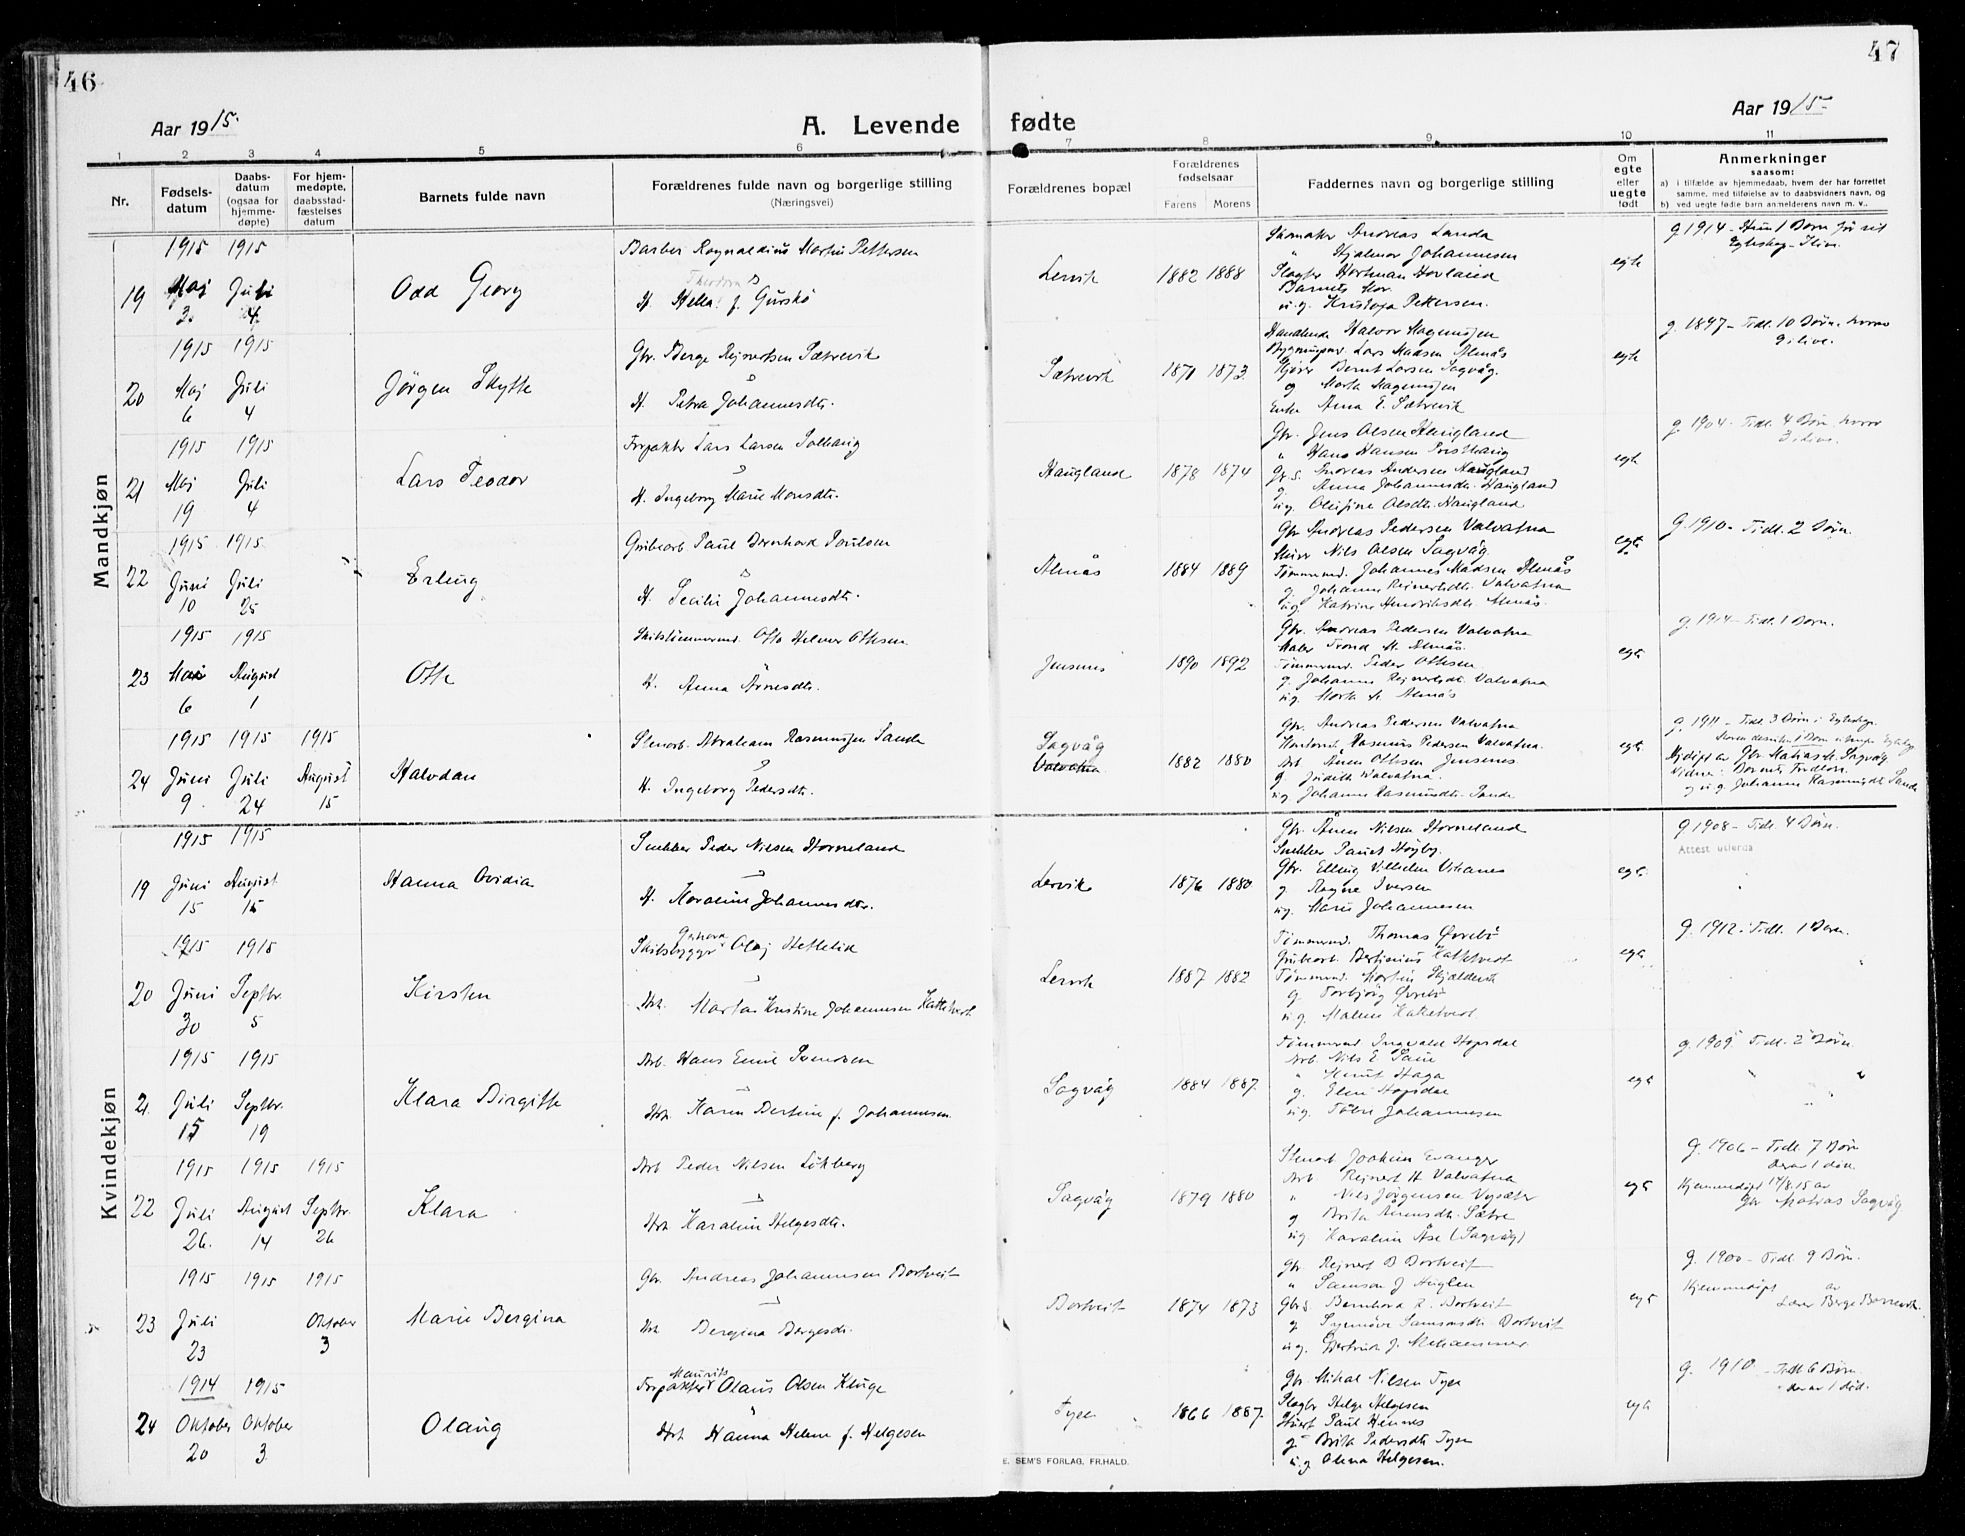 46
47
Aar 1915.
A. Levende fødte
Aar 1915
1 2 3 4 5 6 7 8 9 10 11
Nr.
Fødsels-datum
Daabs-datum (ogsaa for hjemme-døpte)
For hjem-medøpte, daabsstad-fæstelses datum
Barnets fulde navn
Forældrenes fulde navn og borgerlige stilling
(Næringsvei)
Forældrenes bopæl
Forældrenes fødselsaar
Farens Morens
Faddernes navn og borgerlige stilling
Om egte eller uegte født
Anmerkninger
saasom:
a) i tilfælde av hjemmedaab, hvem der har forrettet samme, med tilføielse av to daabsvidners navn, og
b) ved uegte fødte barn anmelderens navn m. v..
Mandkjøn
19 1915 Maj 3. 1915 Juli 4. Odd Georg
Barber Rognaldius Martin Pettersen
Theodora
H. f. Gurskø
Lervik 1882 1888
Skomaker Andreas Landa
" Hjalmar Johannesen
Slagter Hartman Hovland
Barnets Mor
u.g. Kristofa Pettersen.
egte
g 1914 - Hun 1 Børn før sit
Egteskap - I live.
20 1915 Maj 6 1915 Juli 4 Jørgen Skytte
Gbr. Berge Rejnertsen Sætrevik
H. Petra Johannesdtr.
Sætrevik 1871 1873.
Handlende Halvor Magnussen
Lars Madsen Almås
Bernt Larsen Sagvåg.
g Marta Magnussen
Enke Anna E. Sætrevik
egte
g. 1897 - Tidl. 10 Børn, hvorav
9 i live.
21 1915 Maj 19 1915 Juli 4 Lars Teodor
Forpakter Lars Larsen Solhaug
H. Ingeborg Marie Monsdtr.
Haugland 1878 1874
Gbr. Jens Olsen Haugland
" Hans Hansen
Gbr. s. Andreas Andersen Haugland
g. Anna Johannesdtr. Haugland
ug. Olufine Olsdtr. Haugland
egte
g 1904 - Tidl. 4 Børn, hvorav
3 i live.
22 1915 Juni 10 1915 Juli 25 Erling
Grubearb Paul Bernhard Paulsen
H. Secilie Johannesdtr.
Almås 1884 1889
Gbr Andreas Pedersen Valvatna
Nils Olsen Sagvåg.
Tømmermd. Johannes Madsen Almås
g Johanne Rejnertsdtr. Valvatna
ug. Katrine Hendriksdtr. Almås.
egte
G. 1910 - Tidl. 2 Børn.
23 1915 Mai 6 1915 August 1 Otte
Skibstømmermd. Otto Helmer Ottesen
H. Anna Arnesdtr.
Jensenes 1890 1892
Gbr. Andreas Pedersen Valvatna
Maler Trond M. Almås.
Tømmermd. Peder Ottesen
g. Johanne Rejnertsdtr. Valvatna
ug. Marta M. Almås
egte
g. 1914 - Tidl. 1 Børn.
24 1915 Juni 9. 1915 Juli 24 1915 August 15 Halvdan
Stenarb. Abraham Rasmussen Sande
H. Ingeborg Pedersdtr.
Sagvåg
Valvatna 1882 1880
Gbr. Andreas Pedersen Valvatna
Rasmus Pedersen Valvatna.
Arb. Anen Ottesen Jensenes
g Judith Valvatna.
ug. Johanne Rasmusdtr. Sande
egte
g. 1911 - Tidl. 3 Børn i Egteskap.
Hjdøpt av Gbr. Matias H. Sagvåg
Vidner: Barnets Fædre
og u g. Johanne Rasmusdtr Sande
Kvindekjøn
19 1915 Juni 15 1915 August 15 Hanna Ovidia
Snekker Peder Nilsen Horneland
H. Karoline Johannesdtr.
Lervik 1876 1880
Gbr. Anen Nilsen Horneland
Snekker Paul Højby.
Gbr. Elling Vilhelm Vikanes
g. Ragne Iversen
ug. Marie Johannesen
egte
g 1908 - Tidl. 4 Børn.
Attest uslerda
20 1915 Juni 30 1915 Septbr. 5 Kirsten
Skibsbygger Gerhard Olaj Hetlelid
Hst. Marta Kristine Johannesen Kattetveit
Lervik 1887 1882
Tømmermd. Thomas Øvrebø
Grubearb Bertinius Kattetvedt
Tømmermd. Martin Skjeldervik
g Torbjörg Øvrebø
u g. Malene Kattetvedt.
egte
g. 1912 - Tidl. 1 Børn.
21. 1915 Juli 15 1915 Septbr. 19 Klara Birgitte
Arb. Hans Emil Svendsen
Hst. Karen Bertine f. Johannesen
Sagvåg 1884 1887.
Tømmermd Ingvald Hopsdal
Arb. Nils E. Saue
" Knut Haga
g. Eline Hopsdal
ug. Tobine Johannesen
egte
g. 1909. Tidl. 2 Børn.
22 1915 Juli 26. 1915 August 14 1915 Septbr. 26 Klara
Arb Peder Nilsen Lökberg
Hst Karoline Helgesdtr.
Sagvåg 1879 1880
Stenarb Joakim Evanger
Arb Rejnert H Valvatna
" Nils Jørgensen Vysæter
g Brita Anensdtr. Sætre
ug Karoline Åse (Sagvåg)
egte
g. 1906 - Tidl 7 Børn
derav 1 død.
Hjemmedøpt 14/8.15 av
Gbr Matias Sagvåg
23 1915 Juli 23 1915 1915 Oktober 3 Marie Bergina
Gbr. Andreas Johannesen Børtveit
Hst Bergina Bergesdtr.
Børtveit 1874 1873
Gbr. Rejnert B Børtveit
" Samson J Huglen
Gbr. s Bernhard R. Børtveit
g Synnöve Samsonsdtr. Børtveit
u.g. Gertrude J. Mehammer.
egte
g. 1900 - Tidl 9 Børn.
Hjemmedøpt av
Lærer Berge
24 1914 Oktober 20 1915 Oktober 3. Olaug
Forpakter Mauritz Olaus Olsen Kluge
Hst Hanna Helene f. Helgesen
Tyse 1866 1887.
Gbr. Mikal Nilsen Tyse
Slagter Helge Helgesen
Stuert Paul Hennes
g. Brita Pedersdtr Tyse
u.g Olena Helgesen.
egte
g. 1910 - Tidl 6 Børn.
derav 1 død.
E. SEM'S FORLAG, FR.HALD.